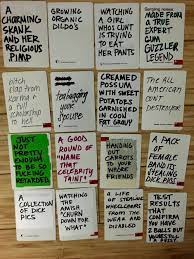 A
CHARMING
SKANK
AND HER
RELIGIOUS
PIMP
GROWING
ORGANIC
DILDO'S
WATCHING
A GIRL
WHO CUNT
IS TRYING
TO EAT
HER
PANTS
MADE FROM
A TRUE
EXPERT
CUM
GUZZLER
LEGEND
bitch
slap from
karma on
a full
scholarship
teabagging
your
CREAMED
POSSUM
WITH SWEET
POTATOES
GARNISHED
IN COON
FAT GRAVY
The All
american
destroyer
JUST
NOT
PRETTY
ENOUGH
TO BE
SO FUCKING
RETARDED.
A GOOD
ROUND OF
"NAME
THAT
CELEBRITY
TAINT"
HANDING
OUT
CARROTS
TO YOUR
FRIENDS
A PACK
OF
FEMALE
STEALING
A
COLLECTION
OF
DICK PICS
WATCHING
THE
AMISH
CHURN
DOWN FOR
WHAT?
A LIFE OF
STEALING
WHEELCHAIRS
FROM THE
AND
DISABLED
TEST
RESULTS
THAT
CONFIRM
WE HAVE
2 BALLS
BUT